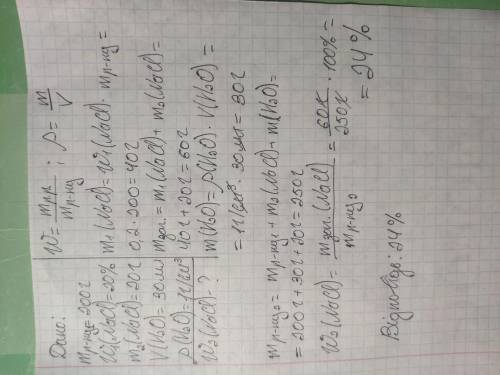 Дано:
m р-ну₁ = 200г
W₁(NaCl)=20%
m₂(NaCl)=20г
V(H₂O)=30мл
ρ(H₂O)=1г/см³
W₂(NaCl)-?
W = m р.р / m р-ну ; ρ = m / V
m₁(NaCl)=W₁(NaCl)·m р-ну =
0,2·200=40г
m заг.=m₁(NaCl)+m₂(NaCl)=
40г+20г=60г
m(H₂O)=ρ(H₂O)·V(H₂O)=
=1г/см³·30мл=30г
m р-ну₂= m р-ну₁+m₂(NaCl)+m(H₂O)=
=200г+30г+20г=250г
W₂(NaCl)= m заг.(NaCl) / m р-ну₂ = 60г / 250г · 100% =
= 24%
Відповідь: 24%